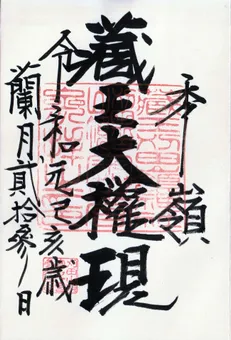 奉嶺
蔵王大権現
令和元己亥歳
蘭月貳拾參日